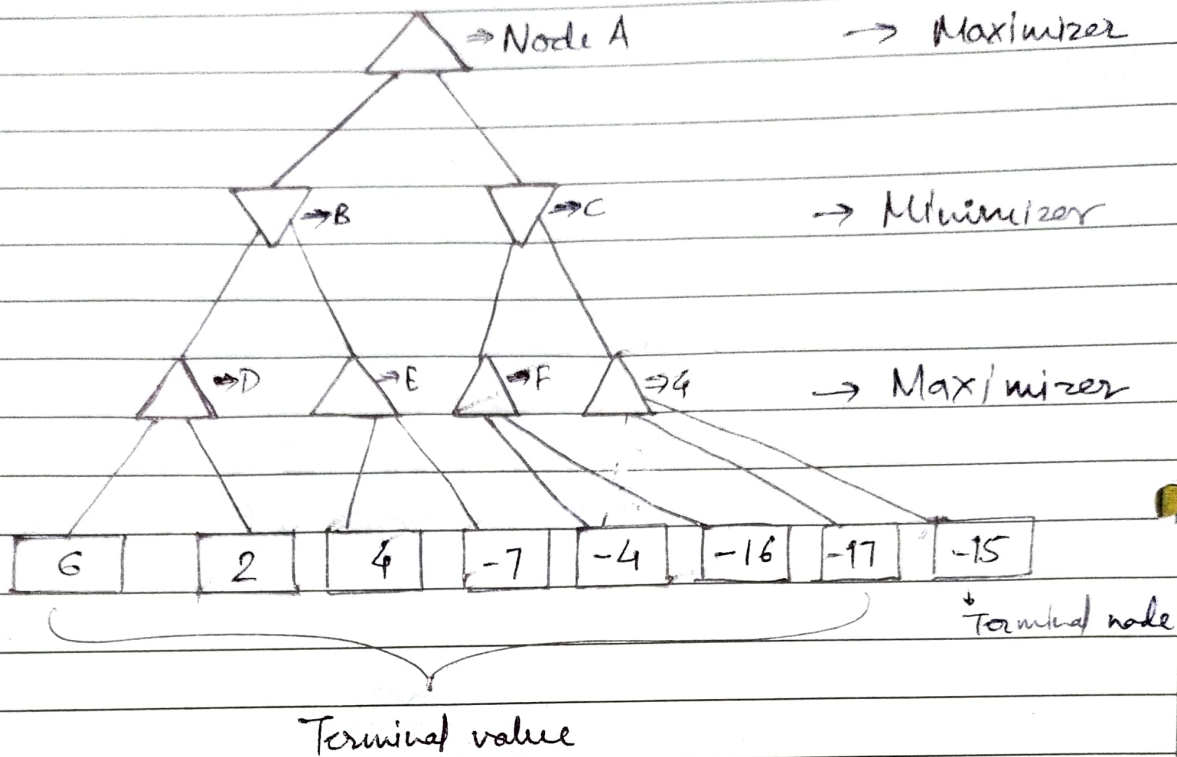 ⇒ Node A → Maximizer
⇒ B ⇒ C → Minimizer
⇒ D ⇒ E ⇒ F ⇒ G → Maximizer
6 2 4 -7 -4 -16 -17 -15
↓
Terminal node
Terminal value